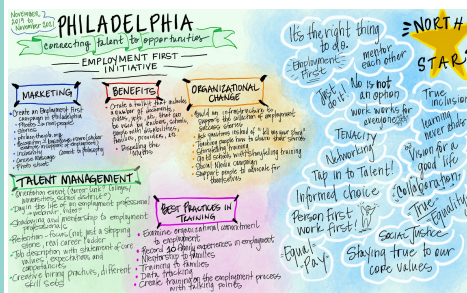 NOVEMBER,
2019 to
November 2021
PHILADELPHIA
connecting talent to opportunities
EMPLOYMENT FIRST
INITIATIVE
MARKETING
Create an Employment First
campaign in Philadelphia
Stories
Consistent Message
BENEFITS
Create a toolkit that includes
a number of documents,
videos, jots, etc. that can
be used by leaders, cohorts,
people with disabilities,
families, providers, etc.
Dispelling the
Myths
ORGANIZATIONAL
CHANGE
Build an infrastructure to
Support the collection of employment
success stories
Ask questions instead of "tell me your story"
Teaching people how to share their stories
Storytelling training
Go to schools with storytelling training
Social Media campaign
Support people to advocate for
themselves
TALENT MANAGEMENT
Orientation event (Career Link? Colleges,
universities, school district)
Day in the life of an employment professional
webinar, video?
Shadowing and mentorship to employment
professionals
Retention - focus (not just a stepping
stone, real career ladder
Job description with statement of core
values, expectations and
competencies
Creative hiring practices, different
skill sets
BEST PRACTICES in
TRAINING
Examine organizational commitment
to employment
Record 30 family experiences in employment
Mentorship to families
Training to families
Data tracking
Create training on the employment process
with talking points
It's the right thing
to do.
Employment
First
mentor
each other
Just
do it!
No is not
an option
work works for
everyone
TENACITY
Networking
Tap in to Talent!
Informed choice
Person first
work first!
Equal
Pay
Social Justice
Staying true to our
core values
NORTH
STAR
True
inclusion
learning
never ends
Vision for a
good life
Collaboration
True
Equality